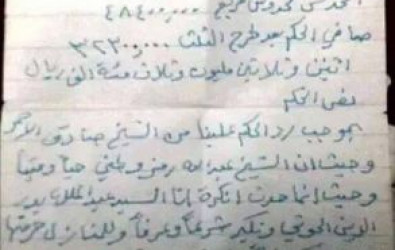 ٤٨٤٠٠,٠٠٠
صافي الحكم بعد طرح الثلث ٣٢٣٠٠,٠٠٠
اثنين وثلاثين مليون وثلاث مئة الف ريال
نص الحكم
بموجب رد الحكم علينا من الشيخ صادق الاحمر
وحيث ان الشيخ عبدالله رمز وطني حياً وميتاً
وحيث انما حدث انكره ابنا السيد عبدالملك بدر
الدين الحوثي شرعاً وعرفاً وللمنازل حرمتها